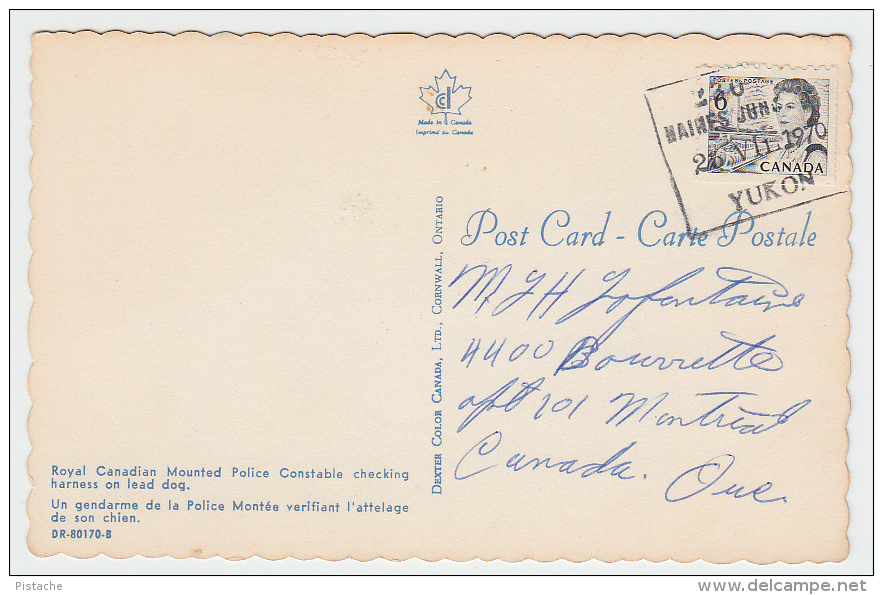 Made in Canada
Imprimé au Canada
POSTES POSTAGE
6
CANADA
HAINES JUNC
25 VII 1970
YUKON
Post Card - Carte Postale
M J H Lafontaine
4400 Bourrette
apt 101 Montréal
Canada. Que.
DEXTER COLOR CANADA, LTD., CORNWALL, ONTARIO
Royal Canadian Mounted Police Constable checking
harness on lead dog.
Un gendarme de la Police Montée verifiant l'attelage
de son chien.
DR-80170-B
Pistache
delcampe.net